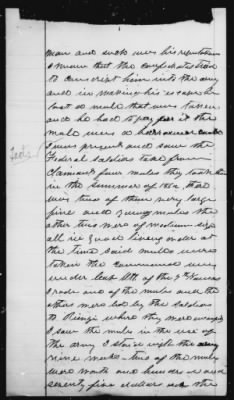 man and such was his reputation
I know that the confederates tried
to conscript him into the army
and in making his escape he
lost a mule that was taken
and he had to pay for it the
mule was a borrowed
I was present and saw the
Federal soldiers take from
Claimant four mules they took them
in the summer of 1862 there
was two of them very large
fine and young mules the
other two were of medium size
all in good living order at
the time said mules were
taken the command was
under Col. of the 7 Kansas
I rode one of the mules and the
others were led by the soldiers
to Rienzi where they were
I saw the mules in the use of
the army I staid with the army
nine months two of the mules
were worth one hundred and
seventy five dollars and the